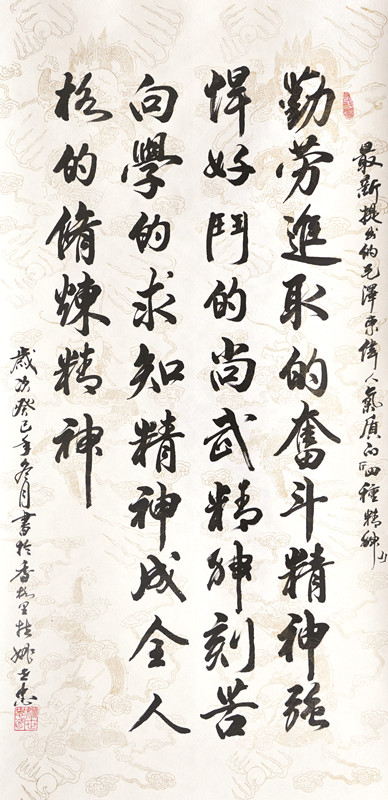 最新提出的毛澤東偉人氣質的『四種精神』
勤劳進取的奮斗精神強
悍好鬥的尚武精神刻苦
向學的求知精神成全人
格的脩煉精神
歲次癸巳年冬月書於香格里拉姚士忠